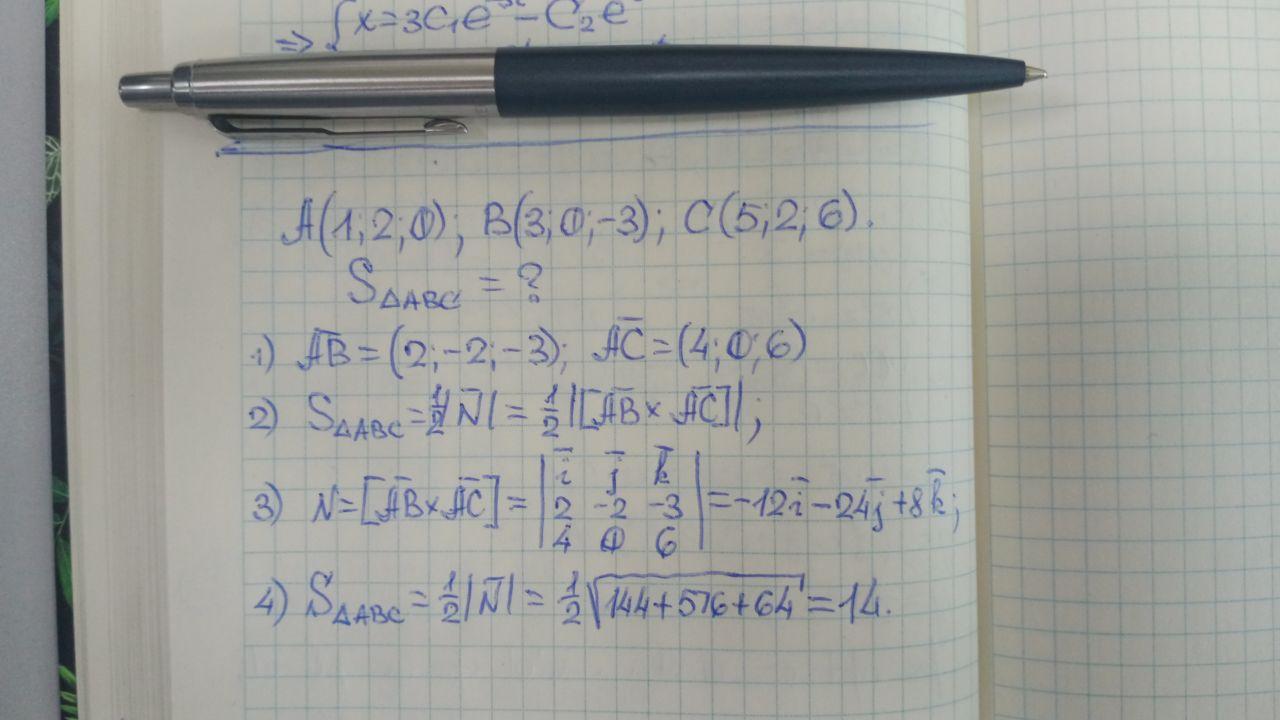 ⇒ {x=3C₁e − C₂e
A(1;2;0); B(3;0;-3); C(5;2;6).
S△ABC = ?
1) A̅B̅ = (2;-2;-3); A̅C̅ = (4;0;6)
2) S△ABC = ½|N̅| = ½|[A̅B̅ × A̅C̅]|;
3) N = [A̅B̅ × A̅C̅] = | i̅ j̅ k̅ |
| 2 -2 -3 | = -12i̅ - 24j̅ + 8k̅;
| 4 0 6 |
4) S△ABC = ½|N̅| = ½√(144+576+64) = 14.